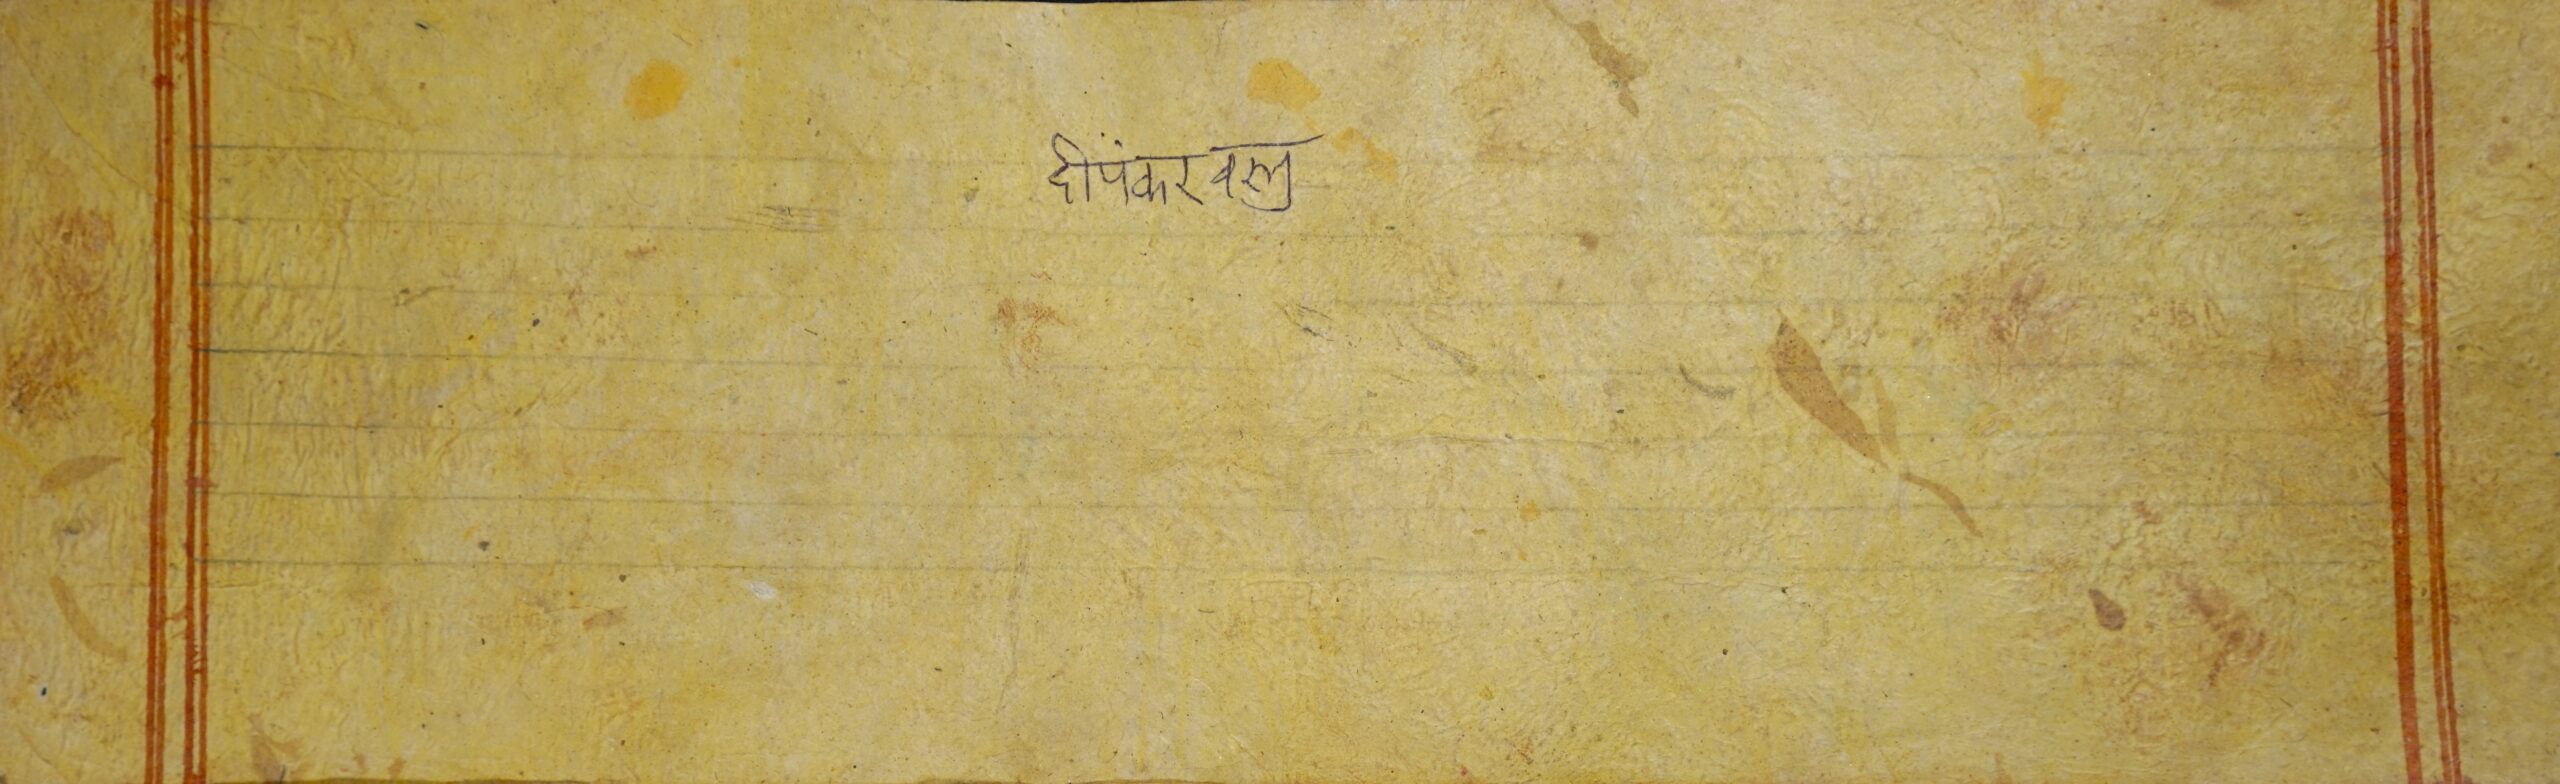 दीपंकर वस्तु